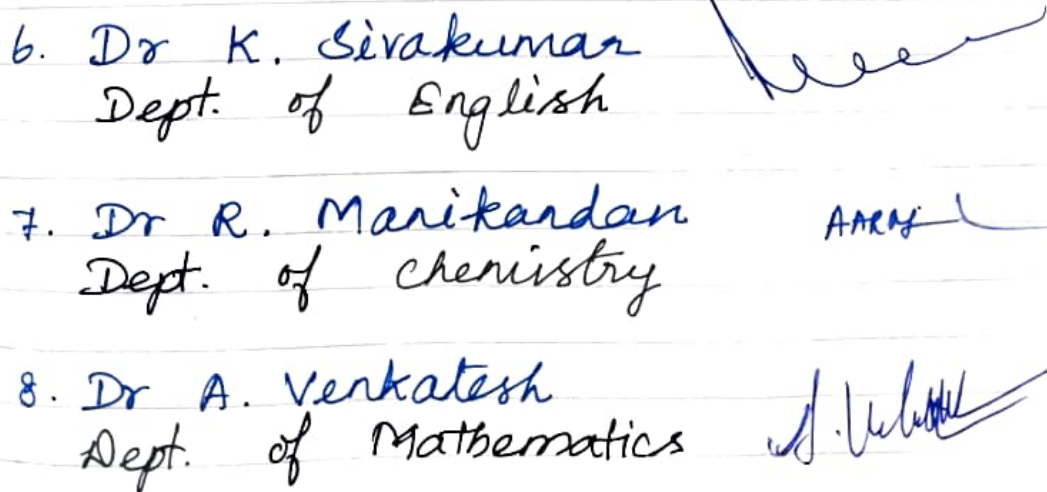 6. Dr K. Sivakumar
Dept. of English
7. Dr R. Manikandan
Dept. of Chemistry
8. Dr A. Venkatesh
Dept. of Mathematics